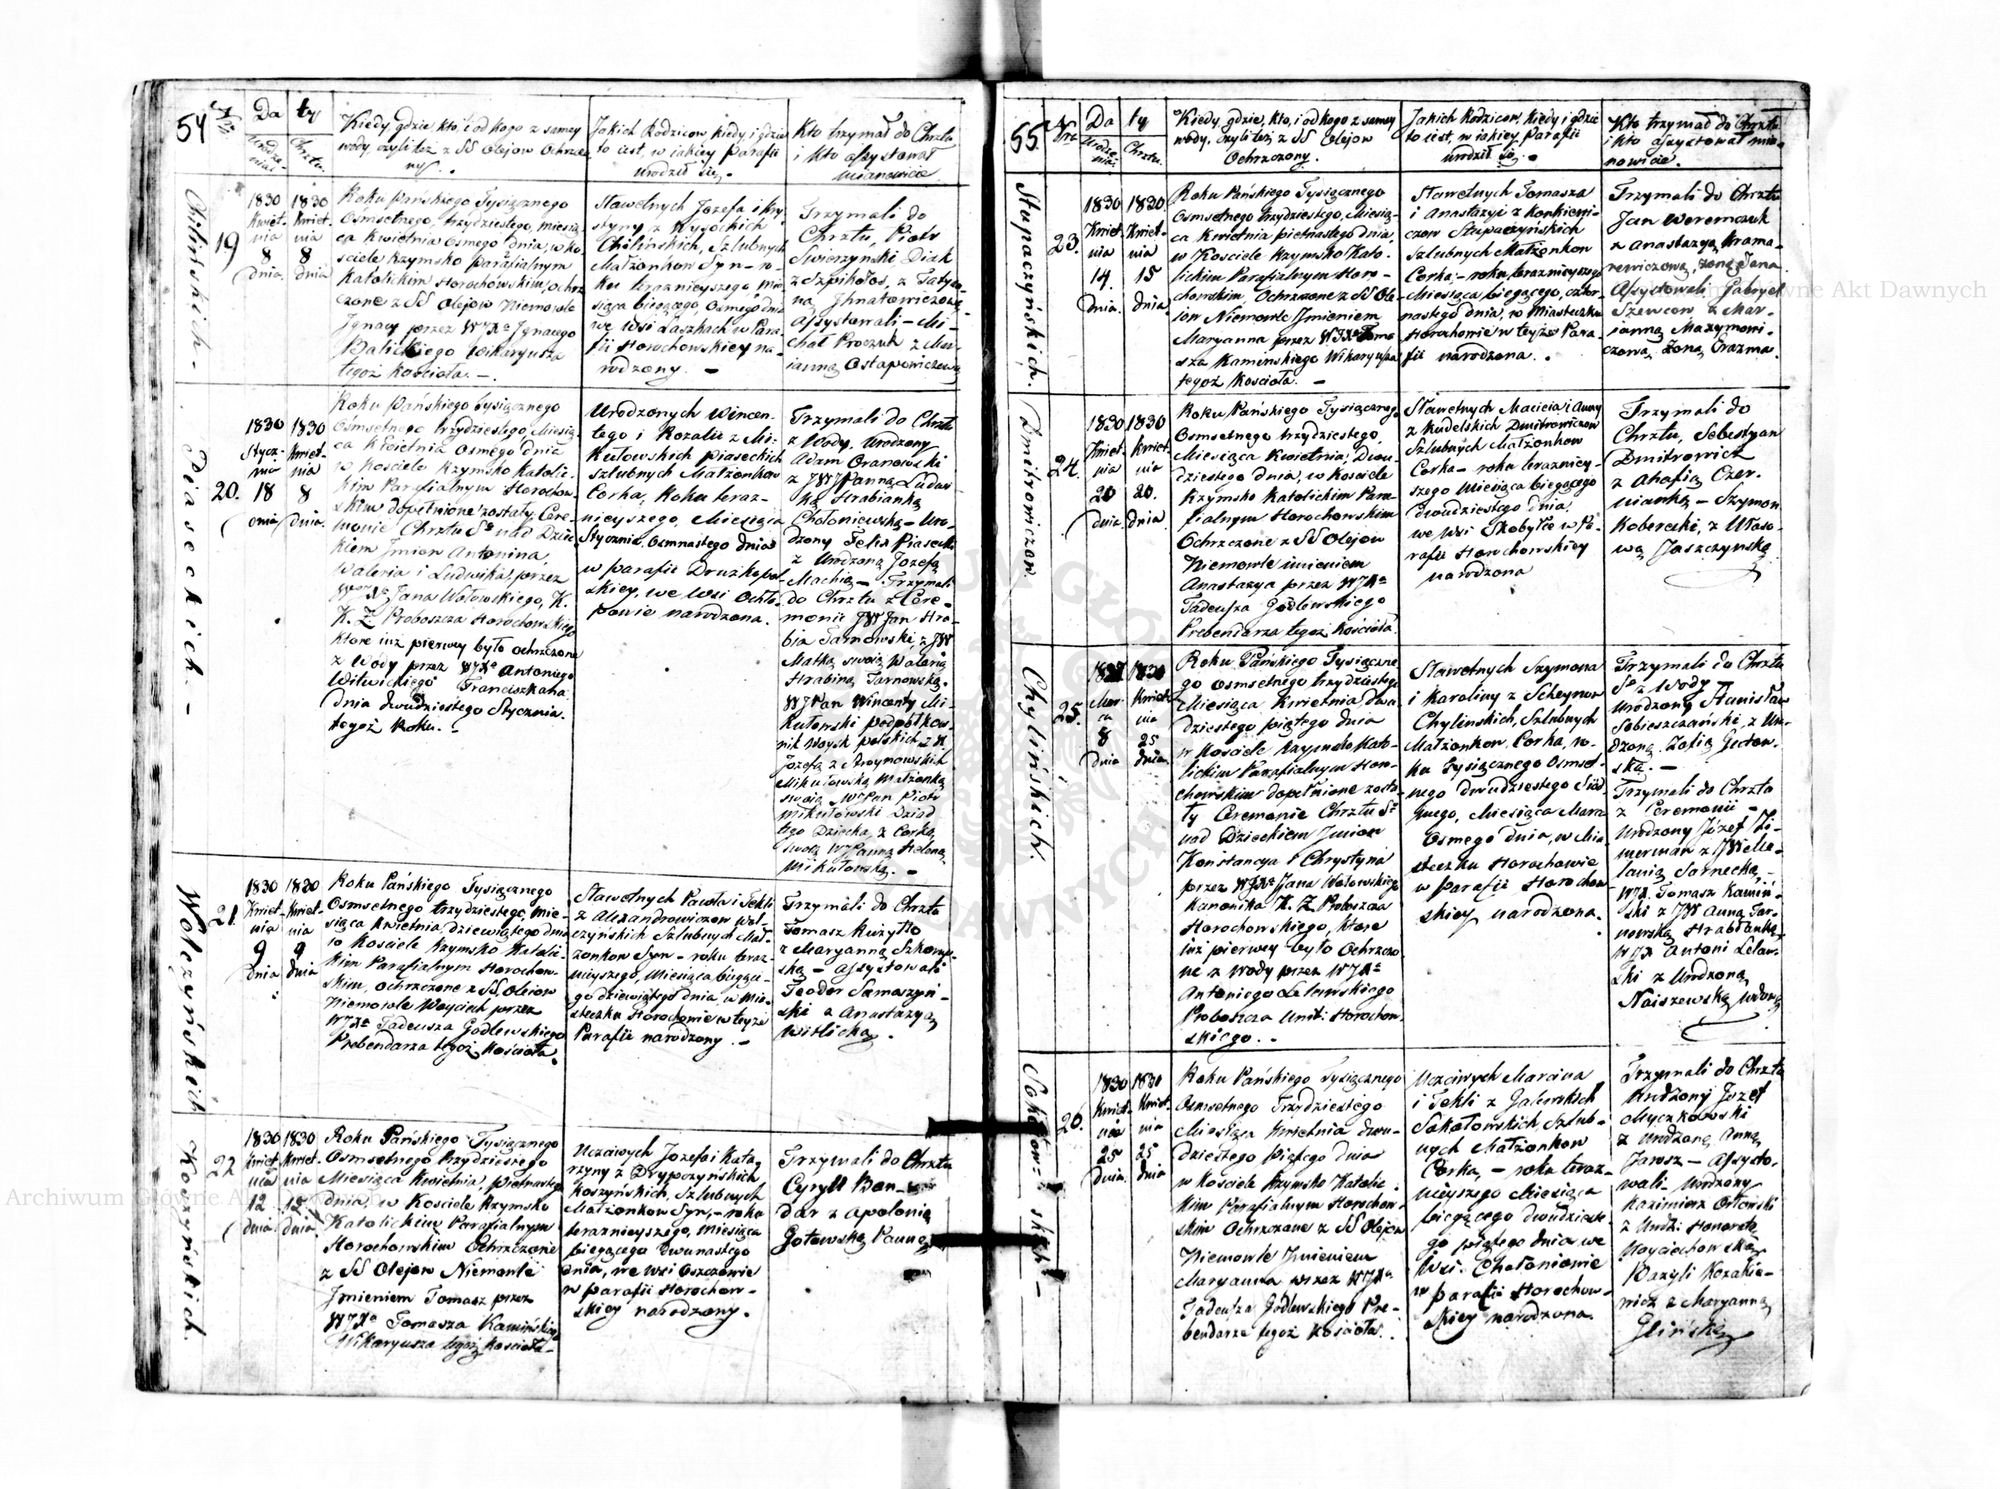 54
Nr
Da
ty
Urodze-
nia
Chrztu.
Kiedy, gdzie, kto, i od kogo z samey
wody, czyli też z SS Olejow Ochrzczo-
ny.
Jakich Rodzicow, kiedy i gdzie
to iest, w iakiey Parafii
urodził się.
Kto trzymał do Chrztu
i kto assystował
mianowicie
Chylińskich
19
1830
Kwiet-
nia
8
dnia.
1830
Kwiet-
nia
8
dnia
Roku Pańskiego Tysiącznego
Osmsetnego, trzydziestego, miesią-
ca Kwietnia Osmego dnia, w ko-
sciele Rzymsko Parafialnym
Katolickim Horochowskim, ochrz-
czone z SS Olejow Niemowle
Jgnacy przez WJX Jgnacego
Balickiego Wikaryusza
tegoż Kościoła. -
Sławetnych Jozefa i Kry-
styny z Wysockich
Chilińskich, Szlubnych
Małżonkow Syn - ro-
ku teraznieyszego, mie-
siąca bieżącego, Osmego dnia
we wsi Łaszkach w Para-
fii Horochowskiey na-
rodzony. -
Trzymali do
Chrztu, Piotr
Swierzynski Diak
z Szpikołos, z Tatya-
ną Jhnatowiczową
Assystowali - Mi-
chał Proczuk z Ma-
ryanną Ostapowiczową
Piaseckich
20.
1830
Stycz-
nia
18
dnia
1830
Kwiet-
nia
8
dnia.
Roku Pańskiego tysiącznego
Osmsetnego trzydziestego, Miesią-
ca Kwietnia Osmego dnia
w Kosciele Rzymsko Katolic-
kim Parafialnym Horochow-
skim dopełnione zostały Cere-
monie Chrztu S° nad Dziec-
kiem Jmion Antonina,
Waleria i Ludwika, przez
WJX Jana Wołowskiego, K.
K. Ł. Proboszcza Horochowskiego
ktore iuż pierwey było ochrzczone
z Wody przez WJX Antoniego
Witwickiego Franciszkana
dnia dwudziestego Stycznia.
tegoż Roku. -
Urodzonych Wincen-
tego i Rozalii z Mi-
kułowskich Piaseckich
szlubnych Małżonkow
Corka, Roku teraz-
nieyszego, Miesiąca
Stycznia, osmnastego dnia
w parafii Druzkopol-
skiey, we Wsi Ochło-
powie narodzona.
Trzymali do Chrztu
z Wody, Urodzony
Adam Oranowski
z JW Panną Ludwi-
ką Hrabianką
Chołoniewską - Uro-
dzony Felix Piasecki
z Urodzoną Jozefą
Machią - Trzymali
do Chrztu z Cere-
monii JW Jan Hra-
bia Tarnowski, z JW
Matką swoią Walerią
Hrabiną Tarnowską.
W Pan Wincenty Mi-
kułowski Podpółkow-
nik Woysk polskich z W.
Jozefą z Woynowskich
Mikułowską Małżonką
swoią, W Pan Piotr
Mikułowski Dziad
tego Dziecka, z Corką
swoią W Panną Heleną
Mikułowską. -
Wołczyńskich
21.
1830
Kwiet-
nia
9
Dnia
1830
Kwiet-
nia
9
dnia
Roku Pańskiego Tysiącznego
Osmsetnego trzydziestego, mie-
siąca Kwietnia, dziewiątego dnia
w Kosciele Rzymsko Katolic-
kim Parafialnym Horochow-
skim, ochrzczone z SS, Oleiow
Niemowle Woyciech przez
WJX Tadeusza Godlewskiego
Prebendarza tegoż Kościoła.
Sławetnych Pawła i Tekli
z Alexandrowiczow Woł-
czyńskich Szlubnych Mał-
żonkow Syn - roku teraz-
nieyszego, Miesiąca bieżące-
go dziewiątego dnia, w Mia-
steczku Horochowie w teyże
Parafii narodzony. -
Trzymali do Chrztu
Tomasz Kuzytło
z Maryanną Szkorup-
ską - Assystowali
Teodor Samoszyń-
ski z Anastazyą
Witlicką.
Koszyńskich.
22
1830
Kwiet-
nia
12
dnia
1830
Kwiet-
nia
15
dnia.
Roku Pańskiego Tysiącznego
Osmsetnego trzydziestego
Miesiąca Kwietnia, piętnastego
dnia, w Kosciele Rzymsko
Katolickim Parafialnym
Horochowskim Ochrzczone
z SS Olejow Niemowle
Jmieniem Tomasz przez
WJX Tomasza Kamińskiego
Wikaryusza tegoż Kosciola -
Uczciwych Jozefa i Kata-
rzyny z Drypczyńskich
Koszyńskich, Szlubnych
Małżonkow Syn, - roku
teraznieyszego, Miesiąca
bieżącego Dwunastego
dnia, we wsi Oszczowie
w parafii Horochow-
skiey narodzony.
Trzymali do Chrztu
Cyryll Bon-
dar z Apolonią
Gotowską Panną
55.
Nro
Da
ty
Urodze-
nia.
Chrztu.
Kiedy, gdzie, kto, i od kogo z samey
wody, czyli też z SS Olejow
Ochrzczony.
Jakich Rodzicow, kiedy i gdzie
to iest, w iakiey Parafii
urodził się.
Kto trzymał do Chrztu
i kto assystował mia-
nowicie.
Stupaczyńskich.
23.
1830
Kwiet-
nia
14.
dnia.
1830
Kwiet-
nia
15
dnia.
Roku Pańskiego Tysiącznego
Osmsetnego trzydziestego, Miesią-
ca Kwietnia piętnastego dnia,
w Kosciele Rzymsko Kato-
lickim Parafialnym Horo-
chowskim, Ochrzczone z SS Ole-
iow Niemowle Jmieniem
Maryanna przez WJX Toma-
sza Kaminskiego Wikaryusza
tegoż Kosciola. -
Sławetnych Tomasza
i Anastazyi z Konkiewi-
czow Stupaczyńskich
Szlubnych Małżonkow
Corka, - roku teraznieyszego
Miesiąca bieżącego, czter-
nastego dnia, w Miasteczku
Horochowie w teyże Para-
fii narodzona.
Trzymali do Chrztu
Jan Weremczuk
z Anastazyą Krama-
rewiczową, żoną Jana
Assystowali Gabryel
Szewcow z Mar-
janną Maxymowi-
czową żoną Erazma.
Dmitrowiczow
24.
1830
Kwiet-
nia
20
dnia.
1830
Kwiet-
nia
20.
dnia
Roku Pańskiego Tysiącznego
Osmsetnego trzydziestego,
Miesiąca Kwietnia, Dwu-
dziestego dnia, w Kosciele
Rzymsko Katolickim Para-
fialnym Horochowskim
Ochrzczone z SS Olejow
Niemowle imieniem
Anastazya przez WJX
Tadeusza Godlewskiego
Prebendarza tegoż Kościoła.
Sławetnych Macieia i Anny
z Kudelskich Dmitrowiczow
Szlubnych Małżonkow
Corka - roku terazniey-
szego Miesiąca bieżącego
dwudziestego dnia,
we Wsi Skobyłce w Pa-
rafii Horochowskiey
narodzona
Trzymali do
Chrztu, Sebestyan
Dmitrowicz
z Ahafią Czer-
nianką - Szymon
Koberecki, z Właso-
wą Jaszczynską
Chylińskich.
25.
1827
Mar-
ca
8
dnia
1830
Kwiet-
nia
25
dnia.
Roku Pańskiego Tysiączne-
go Osmsetnego trzydziestego
Miesiąca Kwietnia dwu-
dziestego piątego dnia
w Kosciele Rzymsko Kato-
lickim Parafialnym Horo-
chowskim dopełnione zosta-
ły Ceremonie Chrztu S°
nad Dzieckiem Jmion
Konstancya i Chrystyna
przez WJX Jana Wołowskiego
Kanonika K. Ł. Proboszcza
Horochowskiego, ktore
iuż pierwey było Ochrzczo-
ne z wody przez WJX
Antoniego Lelawskiego
Proboszcza Unit: Horochow-
skiego. -
Sławetnych Szymona
i Karoliny z Scheynow
Chylinskich, Szlubnych
Małżonkow Corka, ro-
ku tysiącznego Osmset-
nego dwudziestego siód-
mego, Miesiąca Marca
Osmego dnia, w Mia-
steczku Horochowie
w parafii Horochow-
skiey narodzona.
Trzymali do Chrztu
S° z Wody
Urodzony Stanisław
Sobieszczański, z Uro-
dzoną Zofią Gutow-
ską. -
Trzymali do Chrztu
z Ceremonii -
Urodzony Józef Zi-
merman z JW Me-
lanią Sarnecką,
WJX Tomasz Kamiń-
ski z JW Anną Tar-
nowską Hrabianką,
WJX Antoni Lelaw-
ski z Urodzoną
Naiszewską wdową
Sokołow-
skich -
26.
1830
Kwiet-
nia
25
dnia.
1830
Kwiet-
nia
25
dnia
Roku Pańskiego Tysiącznego
Osmsetnego Trzydziestego
Miesiąca Kwietnia dwu-
dziestego piątego dnia
w Kosciele Rzymsko Katolic-
kim Parafialnym Horochow-
skim Ochrzczone z SS Olejow
Niemowle Jmieniem
Maryanna przez WJX
Tadeusza Godlewskiego Pre-
bendarza tegoż Kosciola.
Uczciwych Marcina
i Tekli z Galewskich
Sakałowskich Szlub-
nych Małżonkow
Corka, - roku teraz-
nieyszego Miesiąca
bieżącego dwudzieste-
go piątego dnia, we
Wsi Chołoniowie
w parafii Horochow-
skiey narodzona.
Trzymali do Chrztu
Urodzony Jozef
Myczkowski
z Urodzoną Anną
Jarosz - Assysto-
wali Urodzony
Kazimierz Orłowski
z Urodz: Honoratą
Woyciechowską
Bazyli Kozakie-
wicz z Maryanną
Glińską
Archiwum Główne Akt Dawnych